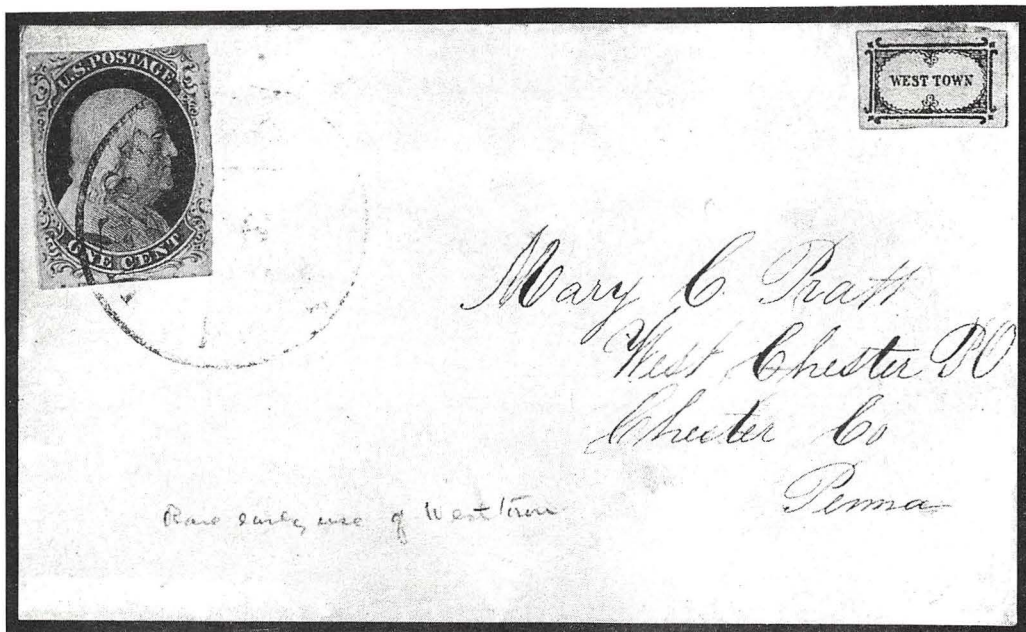 U.S. POSTAGE
ONE CENT
WEST TOWN
Mary C. Pratt
West Chester PO
Chester Co
Penna
Rare early use of West Town